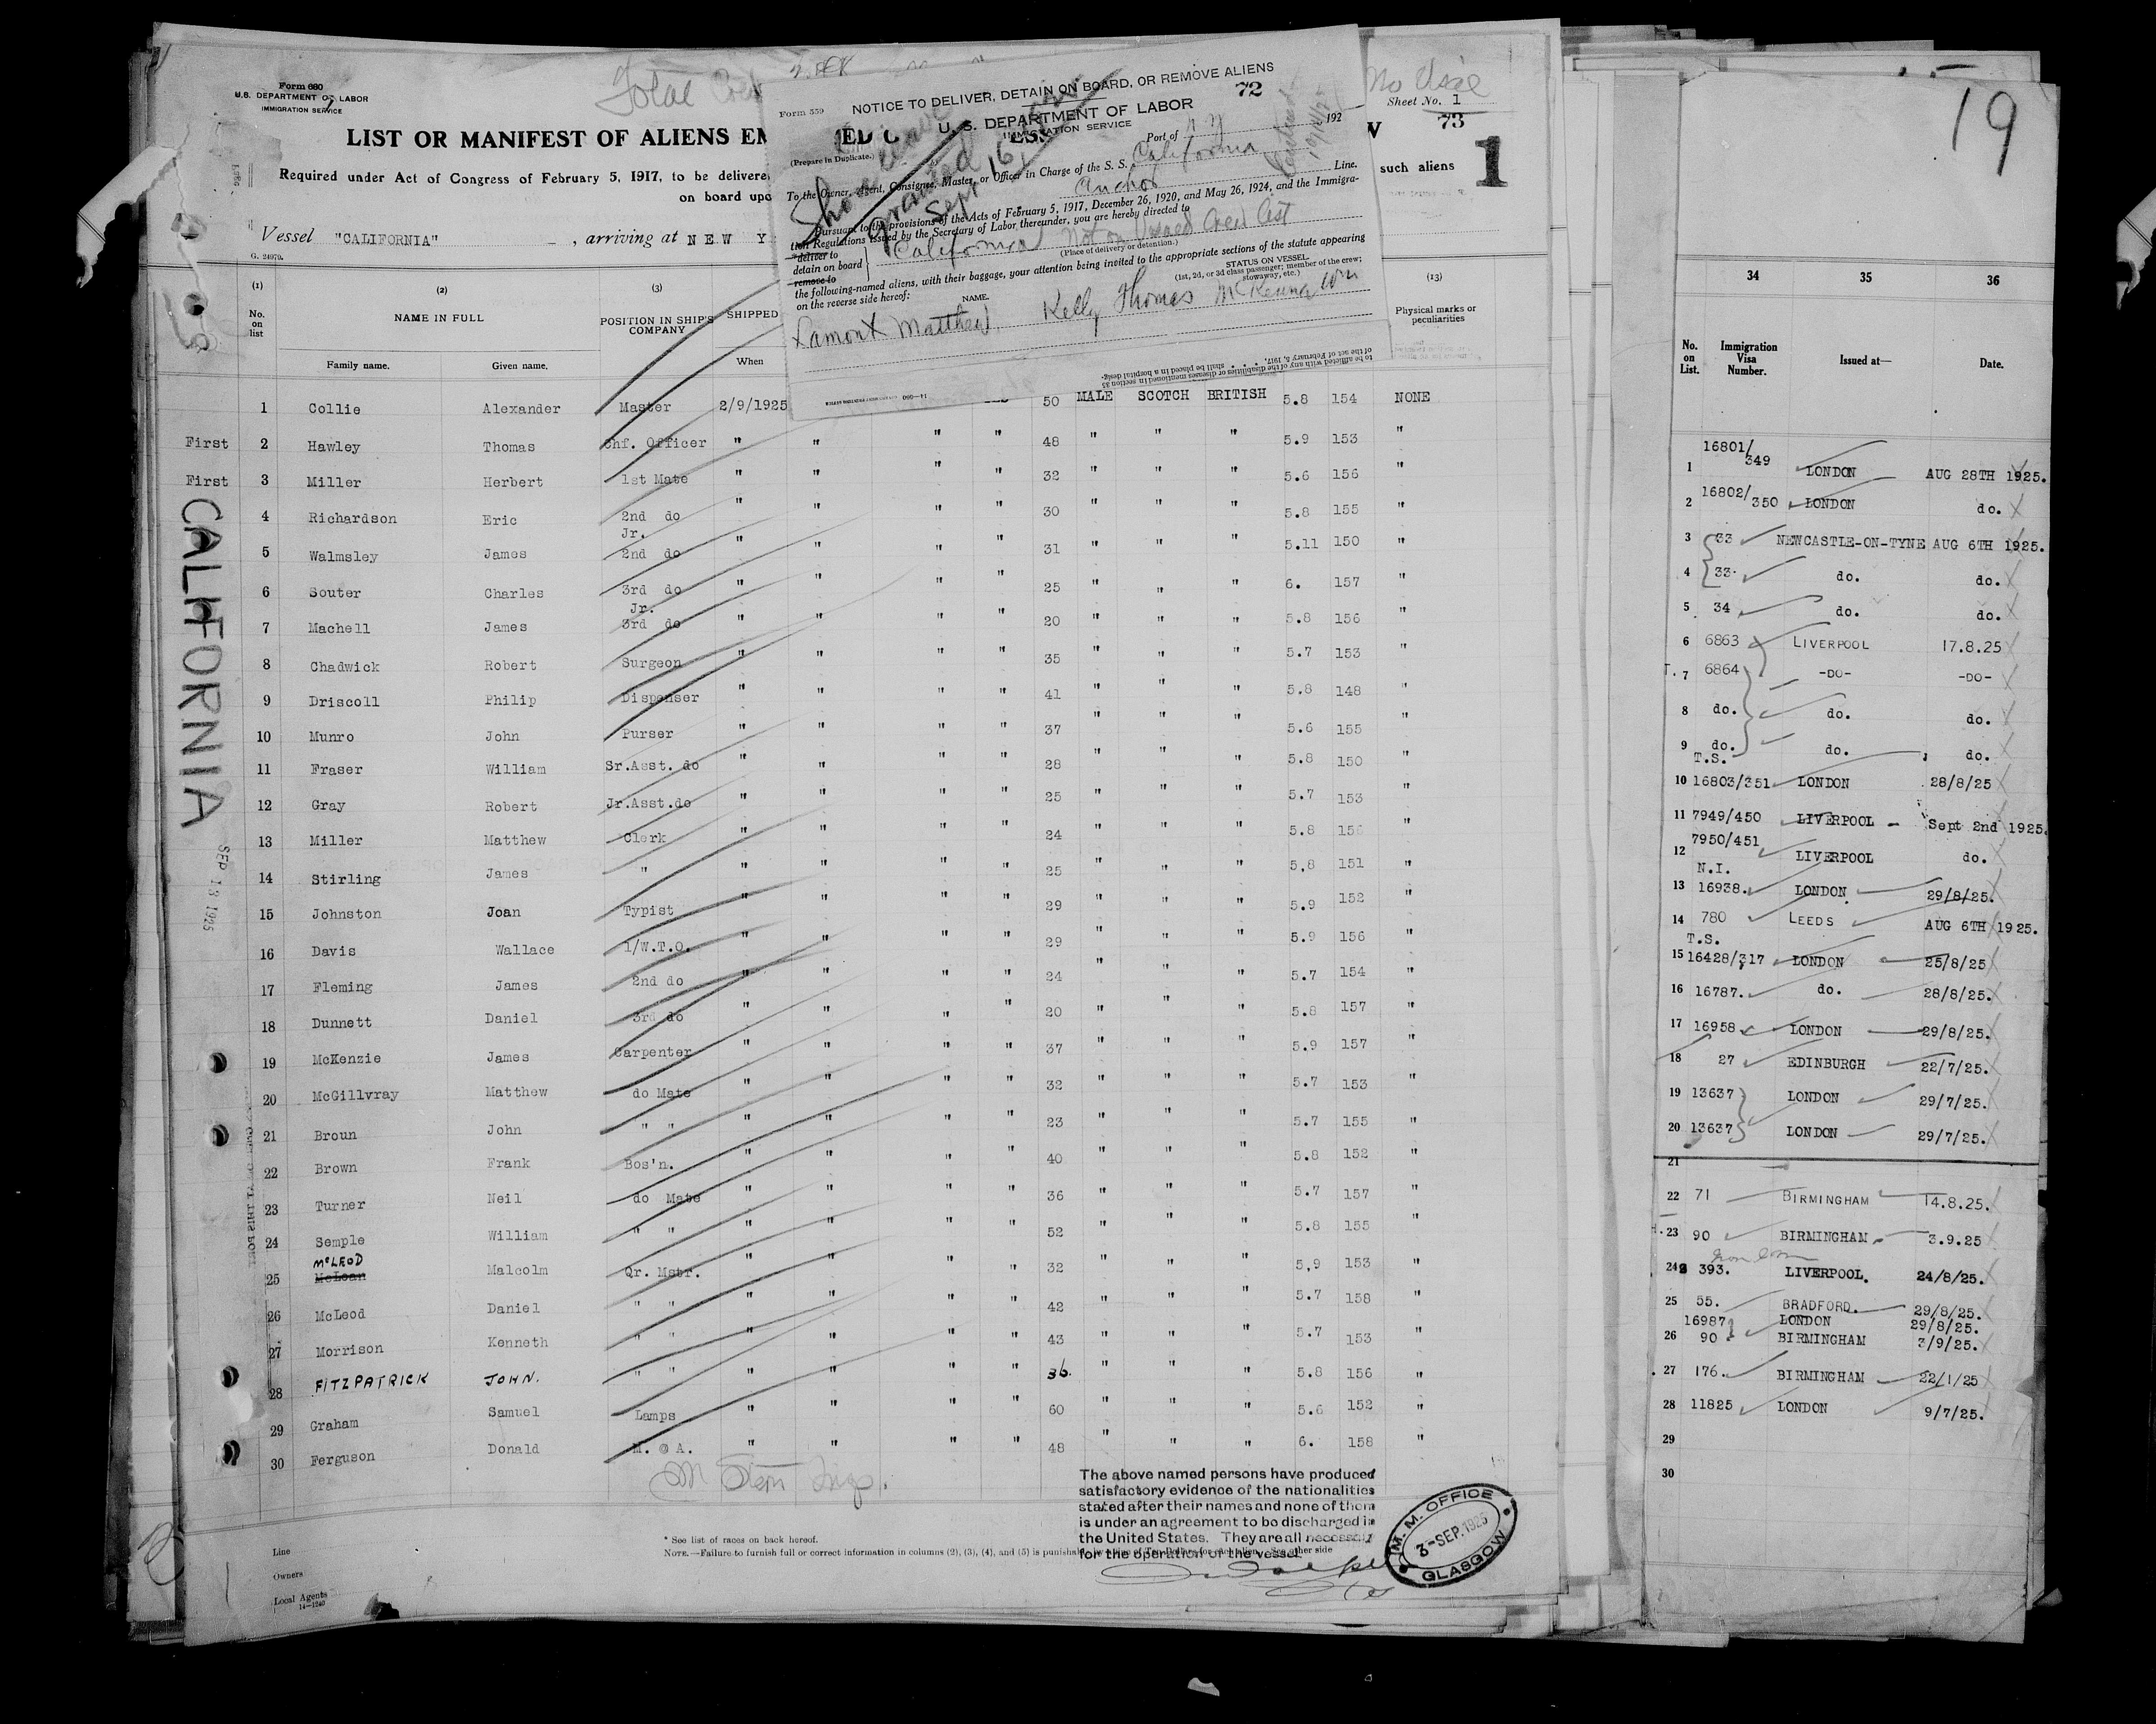 Form 680
U.S. DEPARTMENT OF LABOR
IMMIGRATION SERVICE
Total Crew
LIST OR MANIFEST OF ALIENS EM
Required under Act of Congress of February 5, 1917, to be delivere
on board upo
Vessel "CALIFORNIA" , arriving at NEW Y
G. 24979.
Form 559
NOTICE TO DELIVER, DETAIN ON BOARD, OR REMOVE ALIENS
72
U. S. DEPARTMENT OF LABOR
IMMIGRATION SERVICE
(Prepare in Duplicate.)
Port of N Y 192
To the Owner, Agent, Consignee, Master, or Officer in Charge of the S. S. California
Anchor Line.
Pursuant to the provisions of the Acts of February 5, 1917, December 26, 1920, and May 26, 1924, and the Immigra-
tion Regulations issued by the Secretary of Labor thereunder, you are hereby directed to
*deliver to
detain on board
remove to
California Not on Visaed Crew List
(Place of delivery or detention.)
the following-named aliens, with their baggage, your attention being invited to the appropriate sections of the statute appearing
on the reverse side hereof:
NAME.
STATUS ON VESSEL
(1st, 2d, or 3d class passenger; member of the crew;
stowaway, etc.)
Lamont Matthew Kelly Thomas McKenna Wm
Shore leave
granted
Sept 16
of the act of February 5, 1917. . . . shall be placed in a hospital desig-
to be afflicted with any of the disabilities or diseases mentioned in section 35
No Visae
Sheet No. 1
73
such aliens
1
(1) (2) (3) (13)
No. on list
NAME IN FULL
POSITION IN SHIP'S COMPANY
SHIPPED
Physical marks or peculiarities
Family name. Given name. When
1 Collie Alexander Master 2/9/1925 50 MALE SCOTCH BRITISH 5.8 154 NONE
First 2 Hawley Thomas Chf. Officer " " " " 48 " " " 5.9 153 "
First 3 Miller Herbert 1st Mate " " " " 32 " " " 5.6 156 "
4 Richardson Eric 2nd do " " " " 30 " " " 5.8 155 "
5 Walmsley James Jr. 2nd do " " " " 31 " " " 5.11 150 "
6 Souter Charles 3rd do " " " " 25 " " " 6. 157 "
7 Machell James Jr. 3rd do " " " " 20 " " " 5.8 156 "
8 Chadwick Robert Surgeon " " " " 35 " " " 5.7 153 "
9 Driscoll Philip Dispenser " " " " 41 " " " 5.8 148 "
10 Munro John Purser " " " " 37 " " " 5.6 155 "
11 Fraser William Sr.Asst. do " " " " 28 " " " 5.8 150 "
12 Gray Robert Jr.Asst.do " " " " 25 " " " 5.7 153 "
13 Miller Matthew Clerk " " " " 24 " " " 5.8 156 "
14 Stirling James " " " " " 25 " " " 5,8 151 "
15 Johnston Joan Typist " " " " 29 " " " 5.9 152 "
16 Davis Wallace 1/W.T.O. " " " " 29 " " " 5.9 156 "
17 Fleming James 2nd do " " " " 24 " " " 5.7 154 "
18 Dunnett Daniel 3rd do " " " " 20 " " " 5.8 157 "
19 McKenzie James Carpenter " " " " 37 " " " 5.9 157 "
20 McGillvray Matthew do Mate " " " " 32 " " " 5.7 153 "
21 Broun John " " " " " " 23 " " " 5.7 155 "
22 Brown Frank Bos'n. " " " " 40 " " " 5.8 152 "
23 Turner Neil do Mate " " " " 36 " " " 5.7 157 "
24 Semple William " " " " " " 52 " " " 5.8 155 "
McLEOD
25 McLean Malcolm Qr. Mstr. " " " " 32 " " " 5,9 153 "
26 McLeod Daniel " " " " " " 42 " " " 5.7 158 "
27 Morrison Kenneth " " " " " " 43 " " " 5.7 153 "
28 FITZPATRICK JOHN. " " " " " " 36. " " " 5.8 156 "
29 Graham Samuel Lamps " " " " 60 " " " 5.6 152 "
30 Ferguson Donald M. @ A. " " " " 48 " " " 6. 158 "
CALIFORNIA
SEP 13 1925
The above named persons have produced
satisfactory evidence of the nationalities
stated after their names and none of them
is under an agreement to be discharged in
the United States. They are all necessary
for the operation of the vessel.
M. M. OFFICE
3-SEP.1925
GLASGOW
* See list of races on back hereof.
NOTE.—Failure to furnish full or correct information in columns (2), (3), (4), and (5) is punishable
other side
Line
Owners
Local Agents
14—1240
19
34 35 36
No. on List. Immigration Visa Number. Issued at— Date.
1 16801/349 LONDON AUG 28TH 1925.
2 16802/350 LONDON do.
3 33 NEWCASTLE-ON-TYNE AUG 6TH 1925.
4 33. do. do.
5 34 do. do.
6 6863 LIVERPOOL 17.8.25
T. 7 6864 -DO- -DO-
8 do. do. do.
9 do. do. do.
T.S.
10 16803/351 LONDON 28/8/25
11 7949/450 LIVERPOOL - Sept 2nd 1925.
12 7950/451 LIVERPOOL do.
N.I.
13 16938. LONDON 29/8/25.
14 780 LEEDS AUG 6TH 1925.
T.S.
15 16428/317 LONDON 25/8/25
16 16787. do. 28/8/25.
17 16958 LONDON 29/8/25.
18 27 EDINBURGH 22/7/25.
19 13637 LONDON 29/7/25.
20 13637 LONDON 29/7/25.
21
22 71 BIRMINGHAM 14.8.25.
23 90 BIRMINGHAM 3.9.25
24 393. LIVERPOOL. 24/8/25.
25 55. BRADFORD. 29/8/25.
16987 LONDON 29/8/25.
26 90 BIRMINGHAM 3/9/25.
27 176. BIRMINGHAM 22/1/25
28 11825 LONDON 9/7/25.
29
30